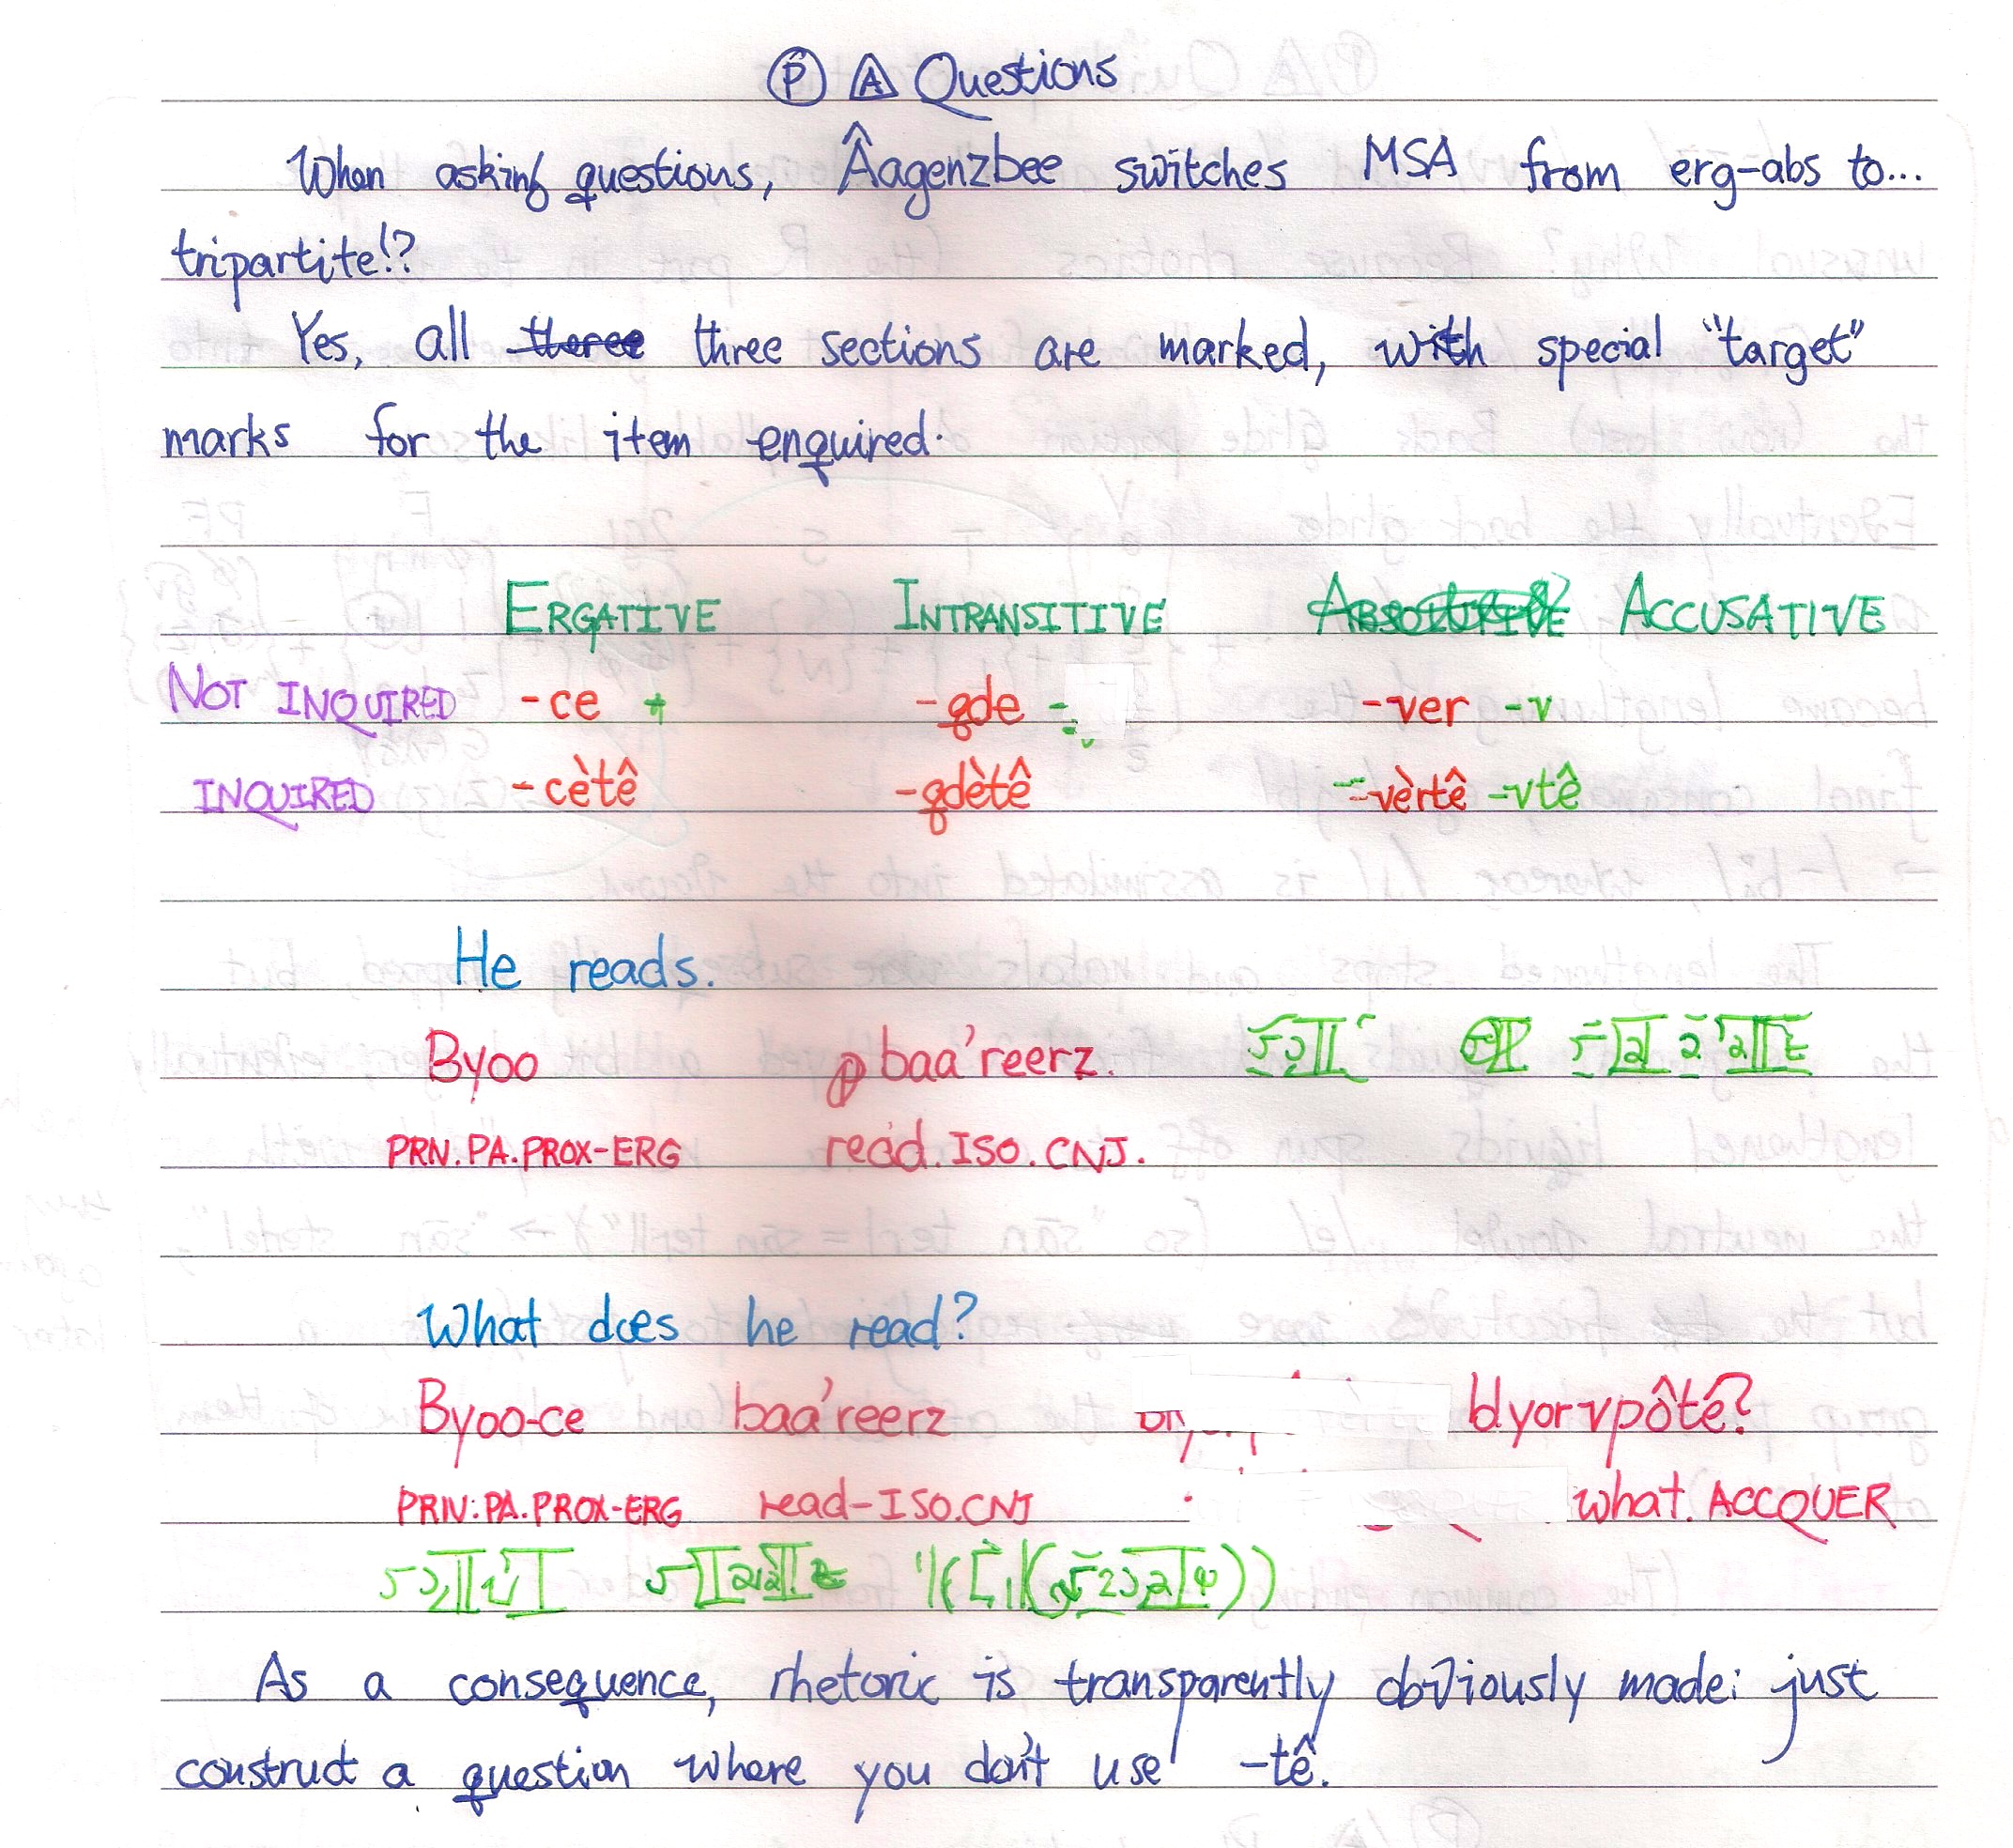 Ⓟ A Questions
When asking questions, Âagenzbee switches MSA from erg-abs to...
tripartite!?
Yes, all theree three sections are marked, with special "target"
marks for the item enquired.
ERGATIVE INTRANSITIVE ABSOLUTIVE ACCUSATIVE
NOT INQUIRED -ce -qde -ver -v
INQUIRED -cètê -qdètê -vèrtê -vtê
He reads.
Byoo baa'reerz.
PRN.PA.PROX-ERG read.ISO.CNJ.
What does he read?
Byoo-ce baa'reerz byorvpôtê?
PRN.PA.PROX-ERG read-ISO.CNJ what.ACCQUER
As a consequence, rhetoric is transparently obviously made: just
construct a question where you don't use -tê.